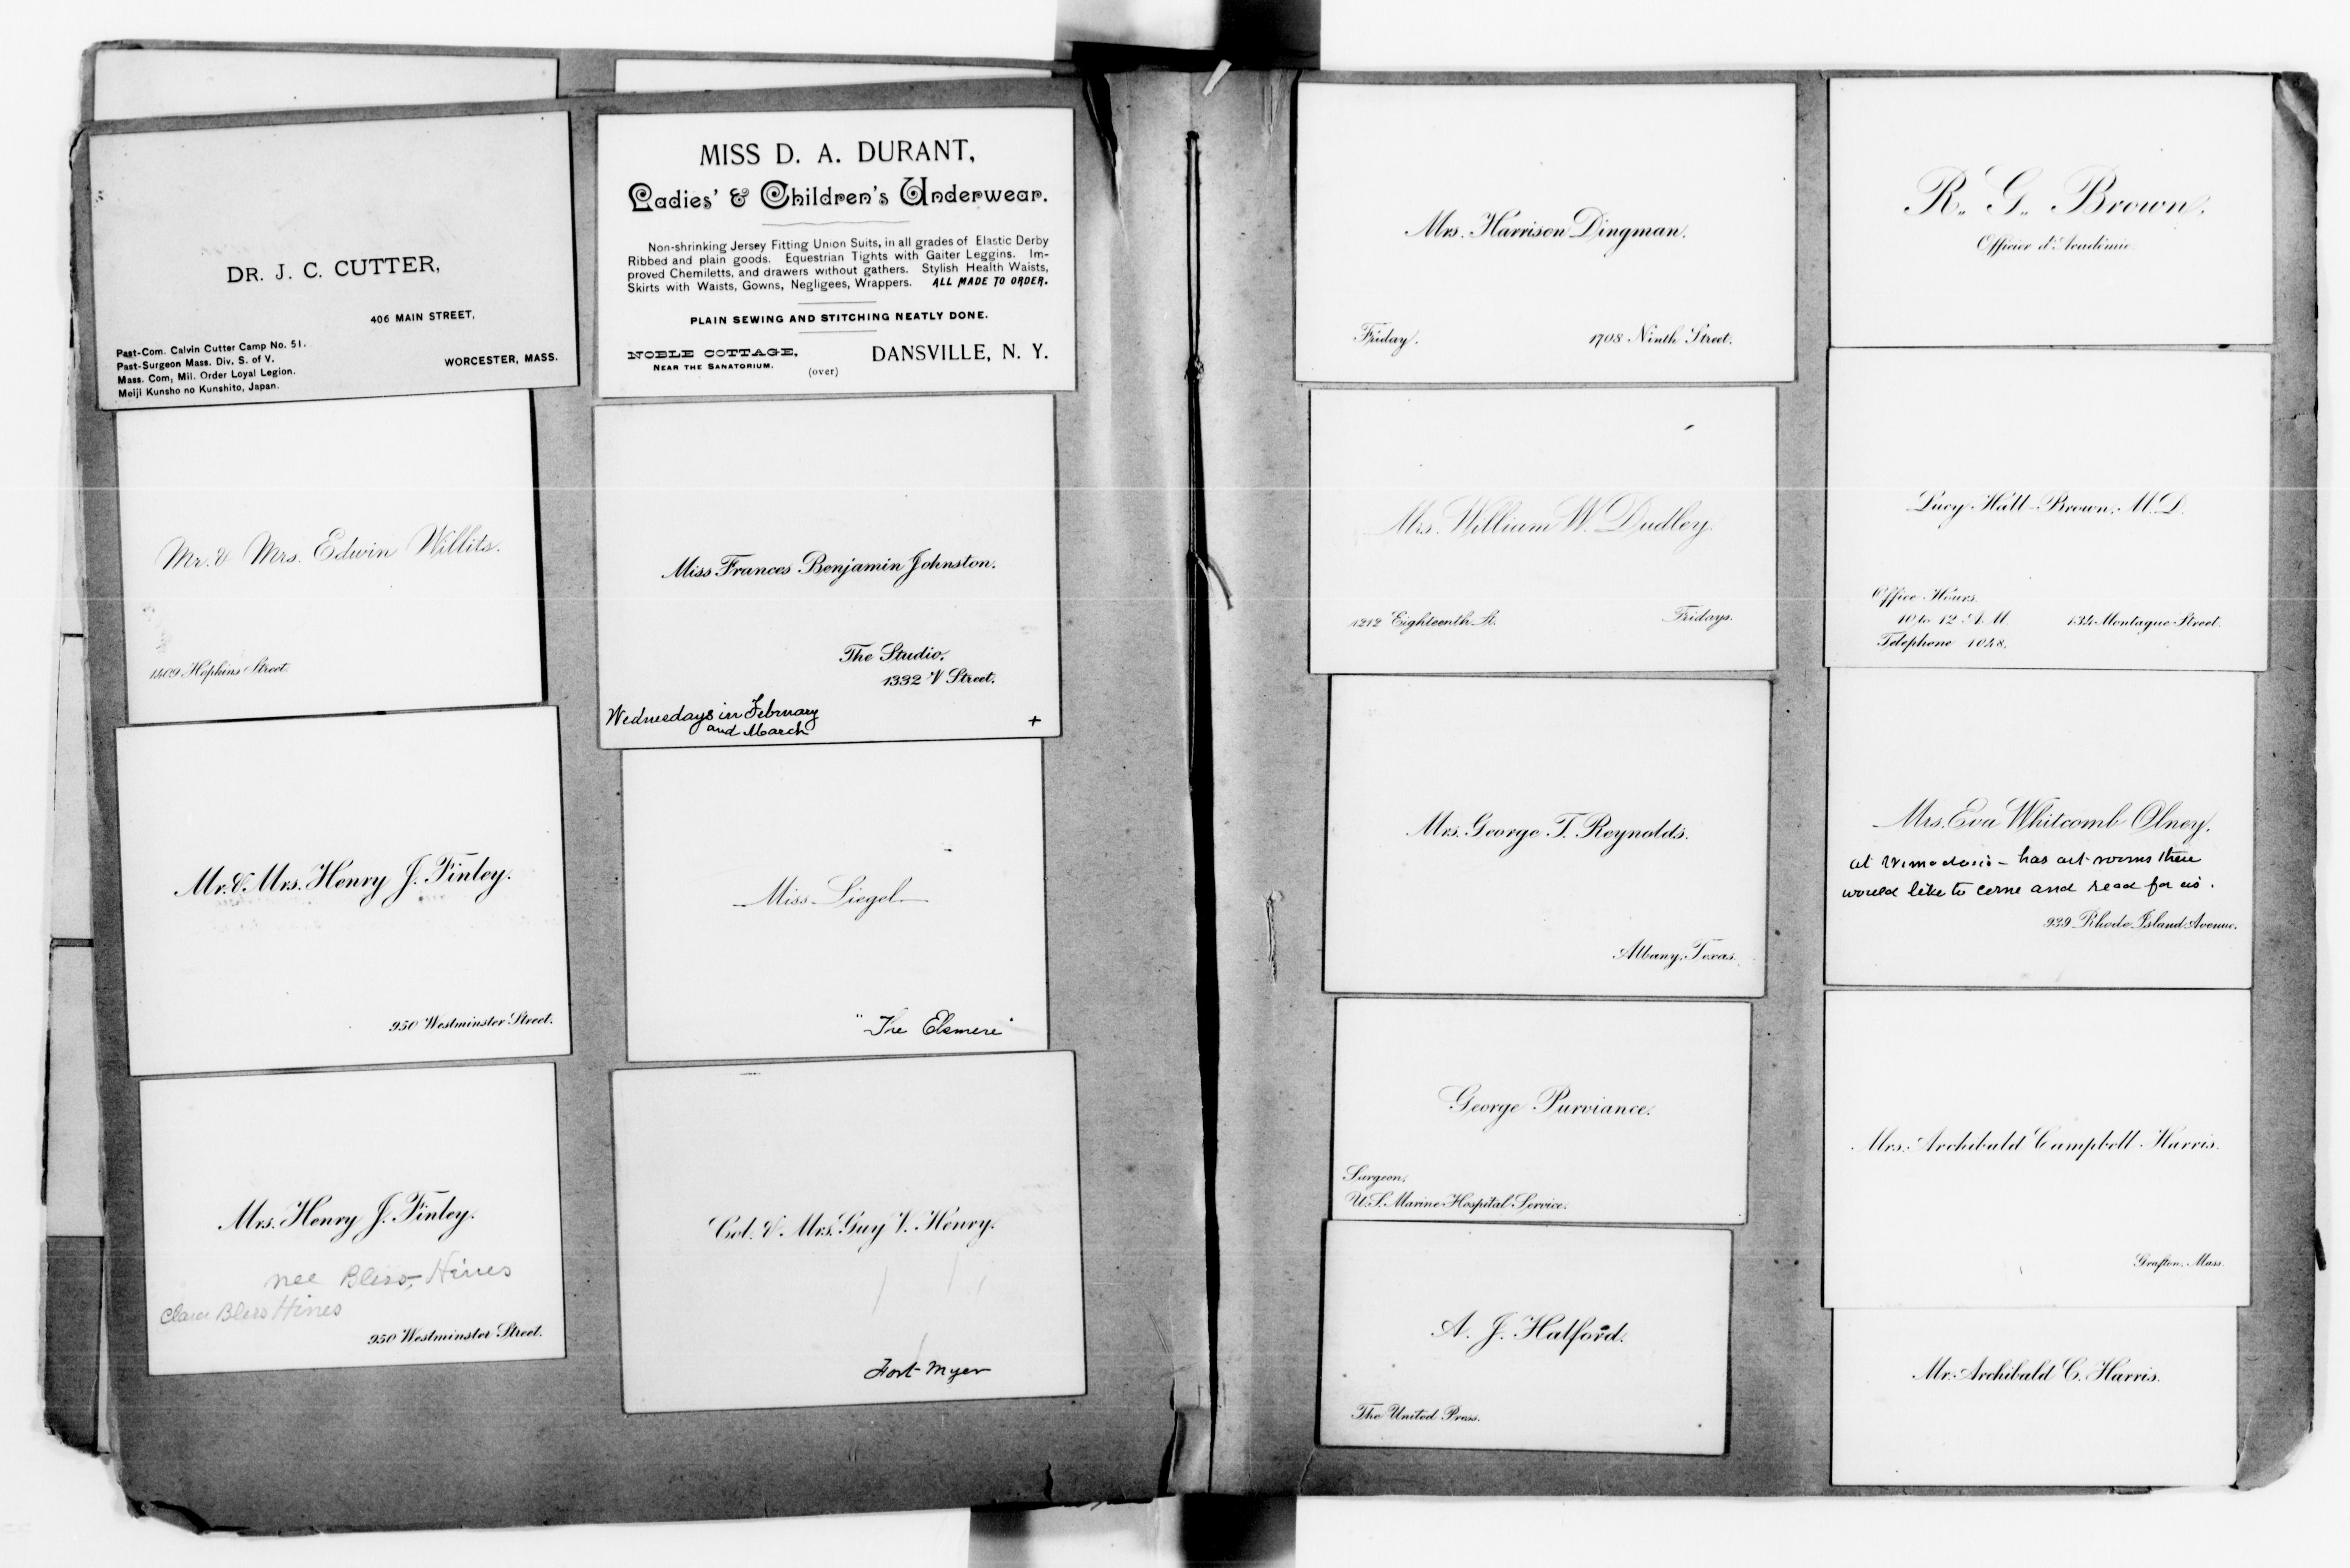 DR. J. C. CUTTER,
406 MAIN STREET,
Past-Com. Calvin Cutter Camp No. 51.
Past-Surgeon Mass. Div. S. of V.
Mass. Com, Mil. Order Loyal Legion.
Meiji Kunsho no Kunshito, Japan.
WORCESTER, MASS.
Mr. & Mrs. Edwin Willits.
1409 Hopkins Street.
Mr. & Mrs. Henry J. Finley.
950 Westminster Street.
Mrs. Henry J. Finley.
nee Bliss-Hines
Clara Bliss Hines
950 Westminster Street.
MISS D. A. DURANT,
Ladies' & Children's Underwear.
Non-shrinking Jersey Fitting Union Suits, in all grades of Elastic Derby
Ribbed and plain goods. Equestrian Tights with Gaiter Leggins. Im-
proved Chemiletts, and drawers without gathers. Stylish Health Waists,
Skirts with Waists, Gowns, Negligees, Wrappers. ALL MADE TO ORDER.
PLAIN SEWING AND STITCHING NEATLY DONE.
NOBLE COTTAGE,
NEAR THE SANATORIUM.
(over)
DANSVILLE, N. Y.
Miss Frances Benjamin Johnston.
The Studio,
1332 V Street.
Wednesdays in February
and March
+
Miss Siegel
"The Elsmere"
Col. & Mrs. Guy V. Henry.
Fort Myer
Mrs. Harrison Dingman.
Friday.
1708 Ninth Street.
Mrs. William W. Dudley.
1212 Eighteenth St.
Fridays.
Mrs. George T. Reynolds.
Albany, Texas.
George Purviance.
Surgeon,
U.S. Marine Hospital Service.
A. J. Halford.
The United Press.
R. G. Brown,
Officier d'Académie
Lucy Hall-Brown, M.D.
Office Hours.
10 to 12 A.M.
134 Montague Street.
Telephone 1048.
Mrs. Eva Whitcomb Olney.
at Wimodausis - has art rooms there
would like to come and read for us.
939 Rhode Island Avenue.
Mrs. Archibald Campbell Harris.
Grafton, Mass.
Mr. Archibald C. Harris.